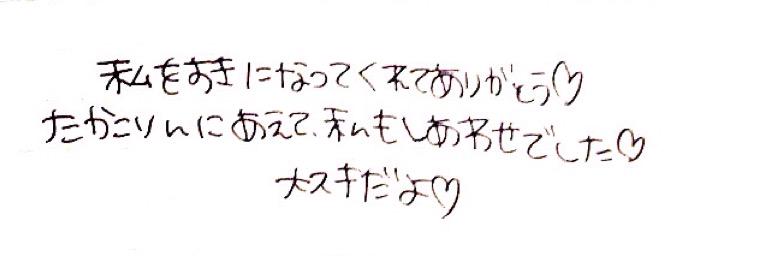 私をすきになってくれてありがとう♡
たかこりんにあえて、私もしあわせでした♡
大スキだよ♡